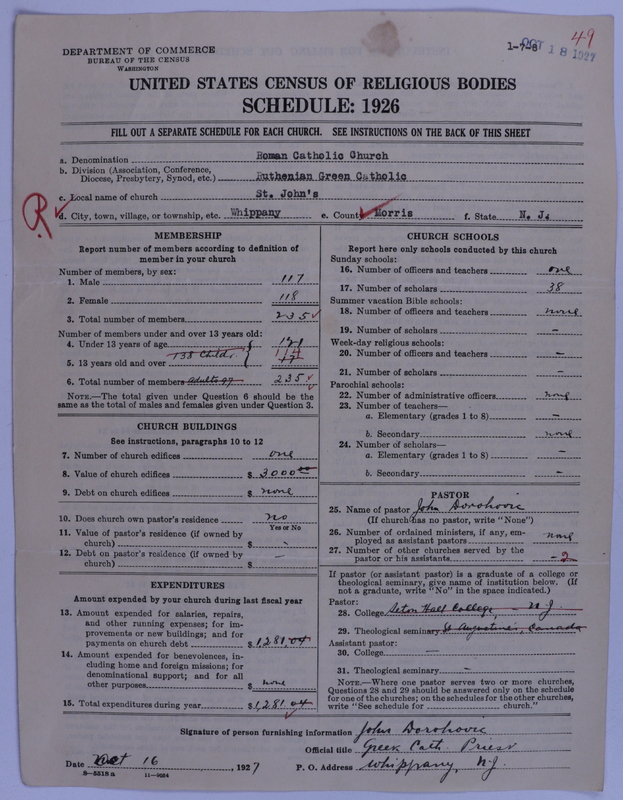 DEPARTMENT OF COMMERCE
BUREAU OF THE CENSUS
WASHINGTON
1-7-8
49
OCT 18 1927
UNITED STATES CENSUS OF RELIGIOUS BODIES
SCHEDULE: 1926
FILL OUT A SEPARATE SCHEDULE FOR EACH CHURCH. SEE INSTRUCTIONS ON THE BACK OF THIS SHEET
a. Denomination Roman Catholic Church
b. Division (Association, Conference,
Diocese, Presbytery, Synod, etc.) Ruthenian Green Catholic
c. Local name of church St. John's
R
d. City, town, village, or township, etc. Whippany e. County Morris f. State N. J.
MEMBERSHIP
Report number of members according to definition of
member in your church
Number of members, by sex:
1. Male 117
2. Female 118
3. Total number of members 235
Number of members under and over 13 years old:
4. Under 13 years of age
138 Child.
5. 13 years old and over
6. Total number of members adults 97 235
NOTE.—The total given under Question 6 should be
same as the total of males and females given under Question 3.
CHURCH BUILDINGS
See instructions, paragraphs 10 to 12
7. Number of church edifices one
8. Value of church edifices $ 3000.00
9. Debt on church edifices $ none
10. Does church own pastor's residence no
Yes or No
11. Value of pastor's residence (if owned by
church) $ -
12. Debt on pastor's residence (if owned by
church) $ —
EXPENDITURES
Amount expended by your church during last fiscal year
13. Amount expended for salaries, repairs,
and other running expenses; for im-
provements or new buildings; and for
payments on church debt $ 1,281.04
14. Amount expended for benevolences, in-
cluding home and foreign missions; for
denominational support; and for all
other purposes $ none
15. Total expenditures during year $ 1,281.04
CHURCH SCHOOLS
Report here only schools conducted by this church
Sunday schools:
16. Number of officers and teachers one
17. Number of scholars 38
Summer vacation Bible schools:
18. Number of officers and teachers none
19. Number of scholars -
Week-day religious schools:
20. Number of officers and teachers -
21. Number of scholars -
Parochial schools:
22. Number of administrative officers none
23. Number of teachers—
a. Elementary (grades 1 to 8) -
b. Secondary none
24. Number of scholars—
a. Elementary (grades 1 to 8) -
b. Secondary -
PASTOR
25. Name of pastor John Dorohovic
(If church has no pastor, write "None")
26. Number of ordained ministers, if any, em-
ployed as assistant pastors none
27. Number of other churches served by the
pastor or his assistants 2
If pastor (or assistant pastor) is a graduate of a college or
theological seminary, give name of institution below. (If
not a graduate, write "No" in the space indicated.)
Pastor:
28. College Seton Hall College, - N.J.
29. Theological seminary St Augustine's, Canada
Assistant pastor:
30. College —
31. Theological seminary —
NOTE.—Where one pastor serves two or more churches,
Questions 28 and 29 should be answered only on the schedule
for one of the churches; on the schedules for the other churches,
write "See schedule for church."
Signature of person furnishing information John Dorohovic
Official title Greek Cath. Priest
Date Oct 16, 1927 P. O. Address Whippany, N.J.
8-5518a 11-9624